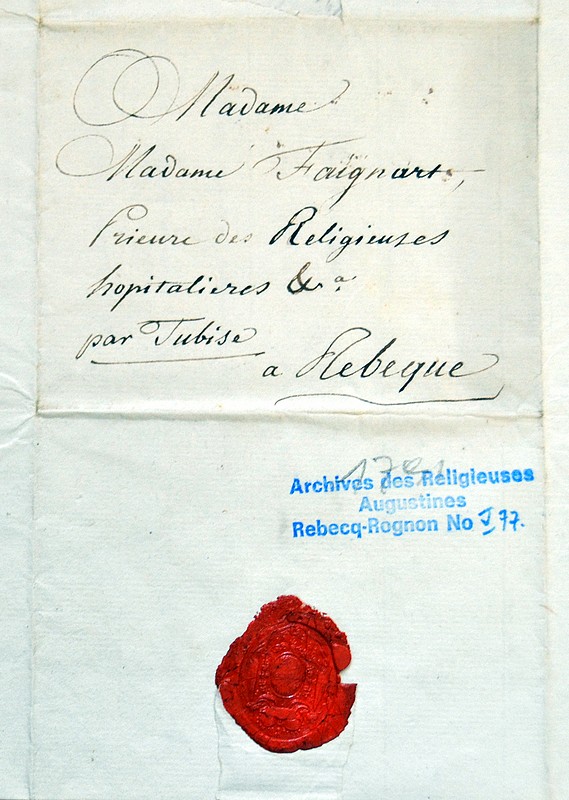 Madame
Madame Faignart,
Prieure des Religieuses
hopitalieres &a
par Tubise
a Rebeque
1791
Archives des Religieuses
Augustines
Rebecq-Rognon No V 77.